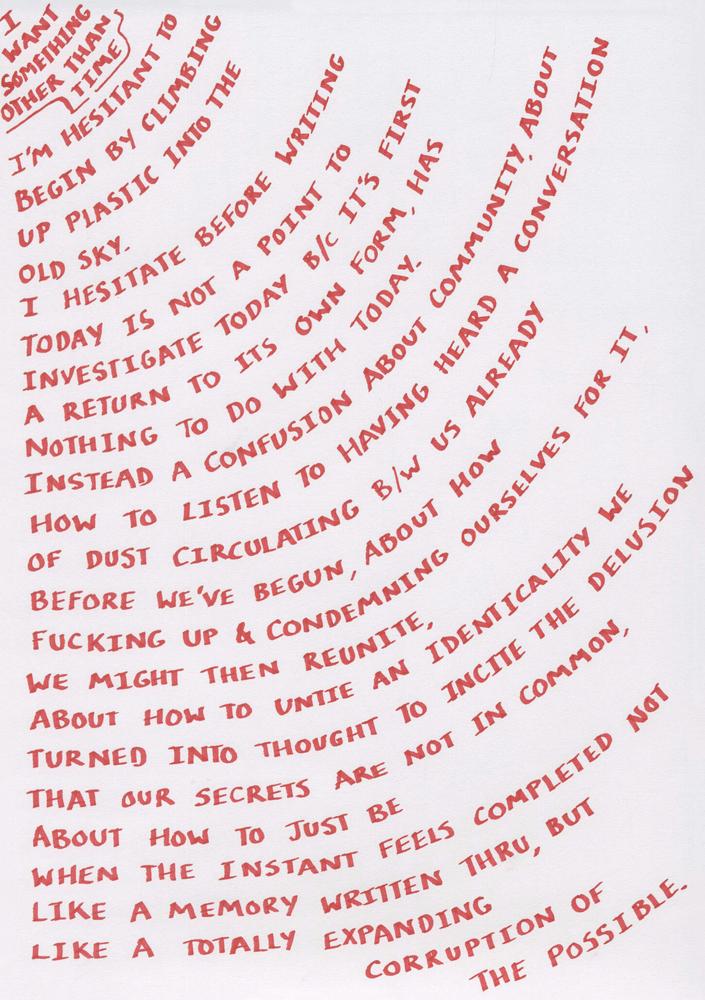 I
WANT
SOMETHING
OTHER THAN
TIME
I'M HESITANT TO
BEGIN BY CLIMBING
UP PLASTIC INTO THE
OLD SKY.
I HESITATE BEFORE WRITING
TODAY IS NOT A POINT TO
INVESTIGATE TODAY B/C IT'S FIRST
A RETURN TO ITS OWN FORM, HAS
NOTHING TO DO WITH TODAY.
INSTEAD A CONFUSION ABOUT COMMUNITY, ABOUT
HOW TO LISTEN TO HAVING HEARD A CONVERSATION
OF DUST CIRCULATING B/W US ALREADY
BEFORE WE'VE BEGUN, ABOUT HOW
FUCKING UP & CONDEMNING OURSELVES FOR IT,
WE MIGHT THEN REUNITE,
ABOUT HOW TO UNTIE AN IDENTICALITY WE
TURNED INTO THOUGHT TO INCITE THE DELUSION
THAT OUR SECRETS ARE NOT IN COMMON,
ABOUT HOW TO JUST BE
WHEN THE INSTANT FEELS COMPLETED NOT
LIKE A MEMORY WRITTEN THRU, BUT
LIKE A TOTALLY EXPANDING
CORRUPTION OF
THE POSSIBLE.